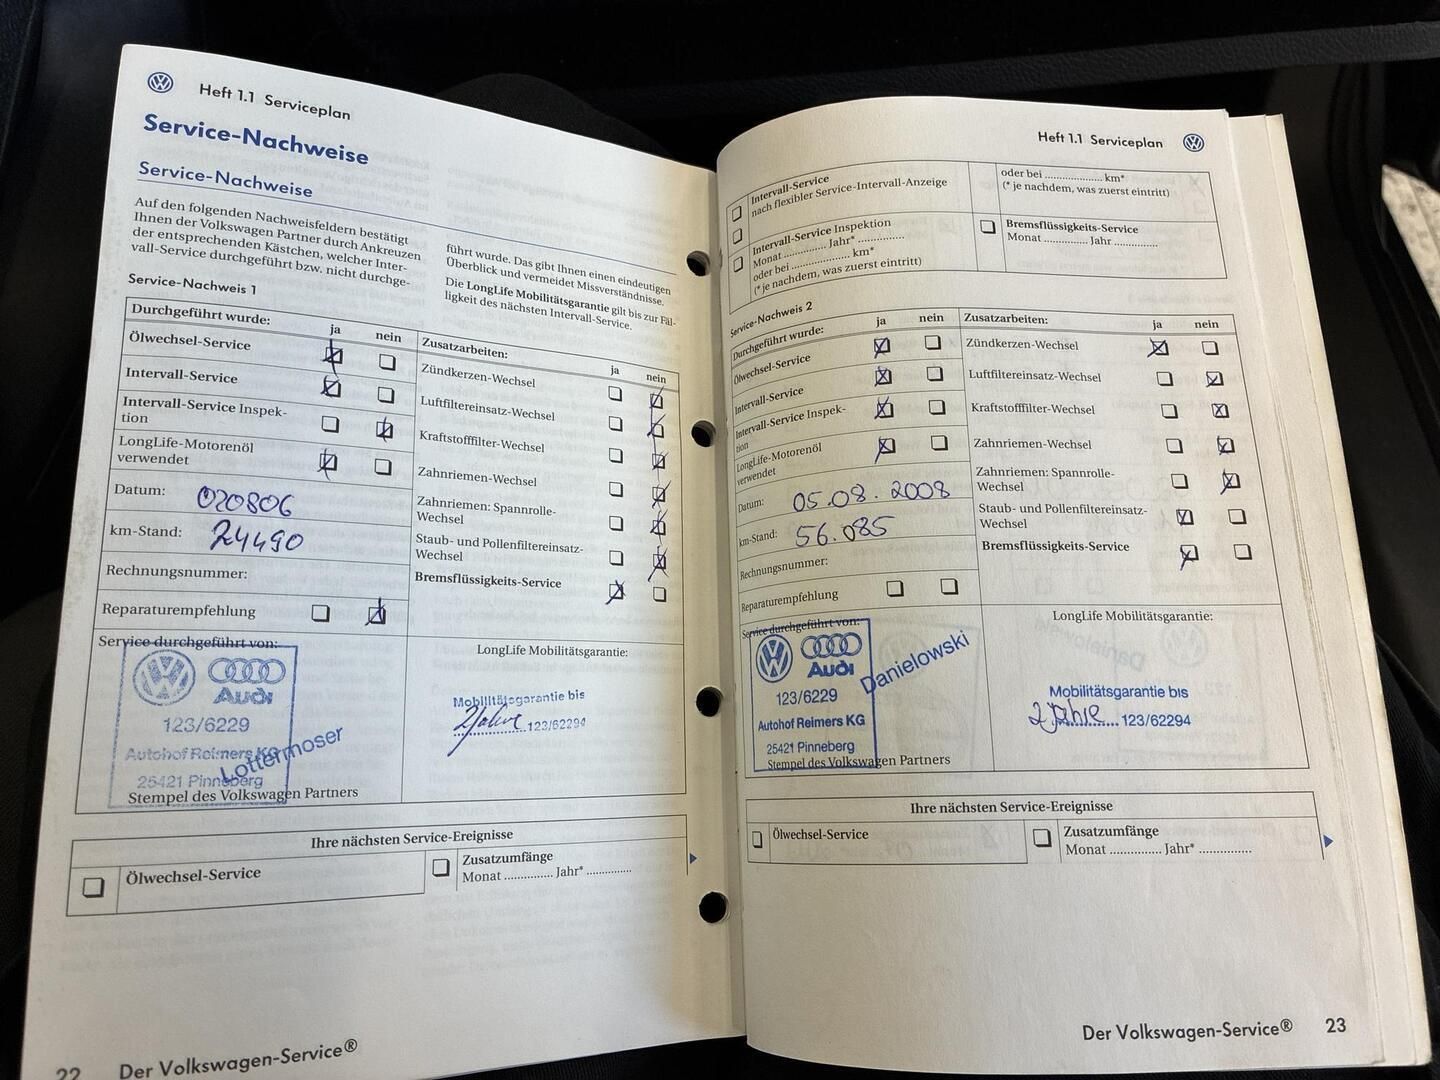 Heft 1.1 Serviceplan
Service-Nachweise
Service-Nachweise
Auf den folgenden Nachweisfeldern bestätigt
Ihnen der Volkswagen Partner durch Ankreuzen
der entsprechenden Kästchen, welcher Inter-
vall-Service durchgeführt bzw. nicht durchge-
führt wurde. Das gibt Ihnen einen eindeutigen
Überblick und vermeidet Missverständnisse.
Die LongLife Mobilitätsgarantie gilt bis zur Fäl-
ligkeit des nächsten Intervall-Service.
Service-Nachweis 1
Durchgeführt wurde: ja nein
Ölwechsel-Service
Intervall-Service
Intervall-Service Inspek-
tion
LongLife-Motorenöl
verwendet
Datum: 020806
km-Stand: 24490
Rechnungsnummer:
Reparaturempfehlung
Zusatzarbeiten: ja nein
Zündkerzen-Wechsel
Luftfiltereinsatz-Wechsel
Kraftstofffilter-Wechsel
Zahnriemen-Wechsel
Zahnriemen: Spannrolle-
Wechsel
Staub- und Pollenfiltereinsatz-
Wechsel
Bremsflüssigkeits-Service
Service durchgeführt von:
Audi
123/6229
Autohof Reimers KG
25421 Pinneberg
Lottermoser
Stempel des Volkswagen Partners
LongLife Mobilitätsgarantie:
Mobilitätsgarantie bis
2 Jahre 123/62294
Ihre nächsten Service-Ereignisse
Ölwechsel-Service
Zusatzumfänge
Monat ............... Jahr* ...............
22 Der Volkswagen-Service®
Heft 1.1 Serviceplan
Intervall-Service
nach flexibler Service-Intervall-Anzeige
Intervall-Service Inspektion
Monat ............... Jahr* ...............
oder bei .................... km*
(* je nachdem, was zuerst eintritt)
oder bei .................... km*
(* je nachdem, was zuerst eintritt)
Bremsflüssigkeits-Service
Monat ............... Jahr ...............
Service-Nachweis 2
Durchgeführt wurde: ja nein
Ölwechsel-Service
Intervall-Service
Intervall-Service Inspek-
tion
LongLife-Motorenöl
verwendet
Datum: 05.08.2008
km-Stand: 56.085
Rechnungsnummer:
Reparaturempfehlung
Zusatzarbeiten: ja nein
Zündkerzen-Wechsel
Luftfiltereinsatz-Wechsel
Kraftstofffilter-Wechsel
Zahnriemen-Wechsel
Zahnriemen: Spannrolle-
Wechsel
Staub- und Pollenfiltereinsatz-
Wechsel
Bremsflüssigkeits-Service
Service durchgeführt von:
Audi
123/6229
Autohof Reimers KG
25421 Pinneberg
Danielowski
Stempel des Volkswagen Partners
LongLife Mobilitätsgarantie:
Mobilitätsgarantie bis
2 Jahre 123/62294
Ihre nächsten Service-Ereignisse
Ölwechsel-Service
Zusatzumfänge
Monat ............... Jahr* ...............
Der Volkswagen-Service® 23